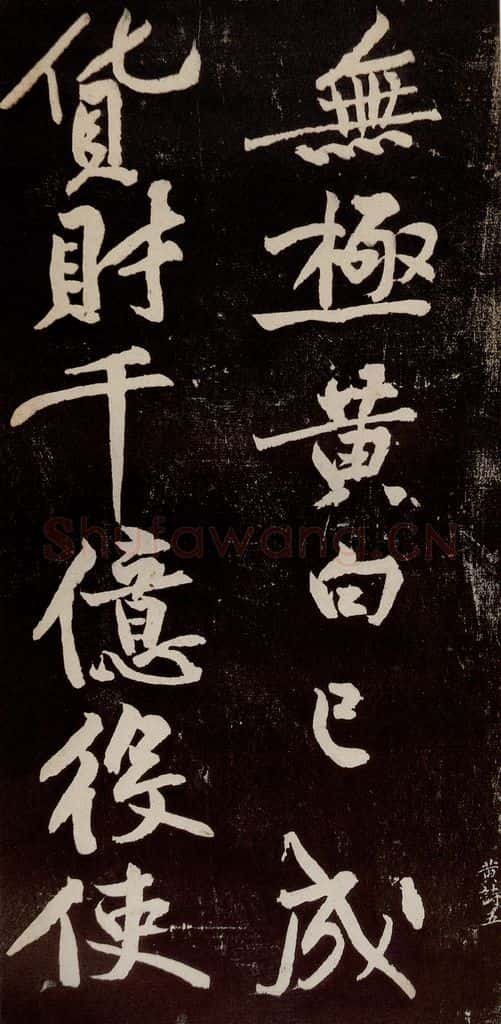 無極黃白已成
貨財千億役使
黄詩五
Shufawang.CN